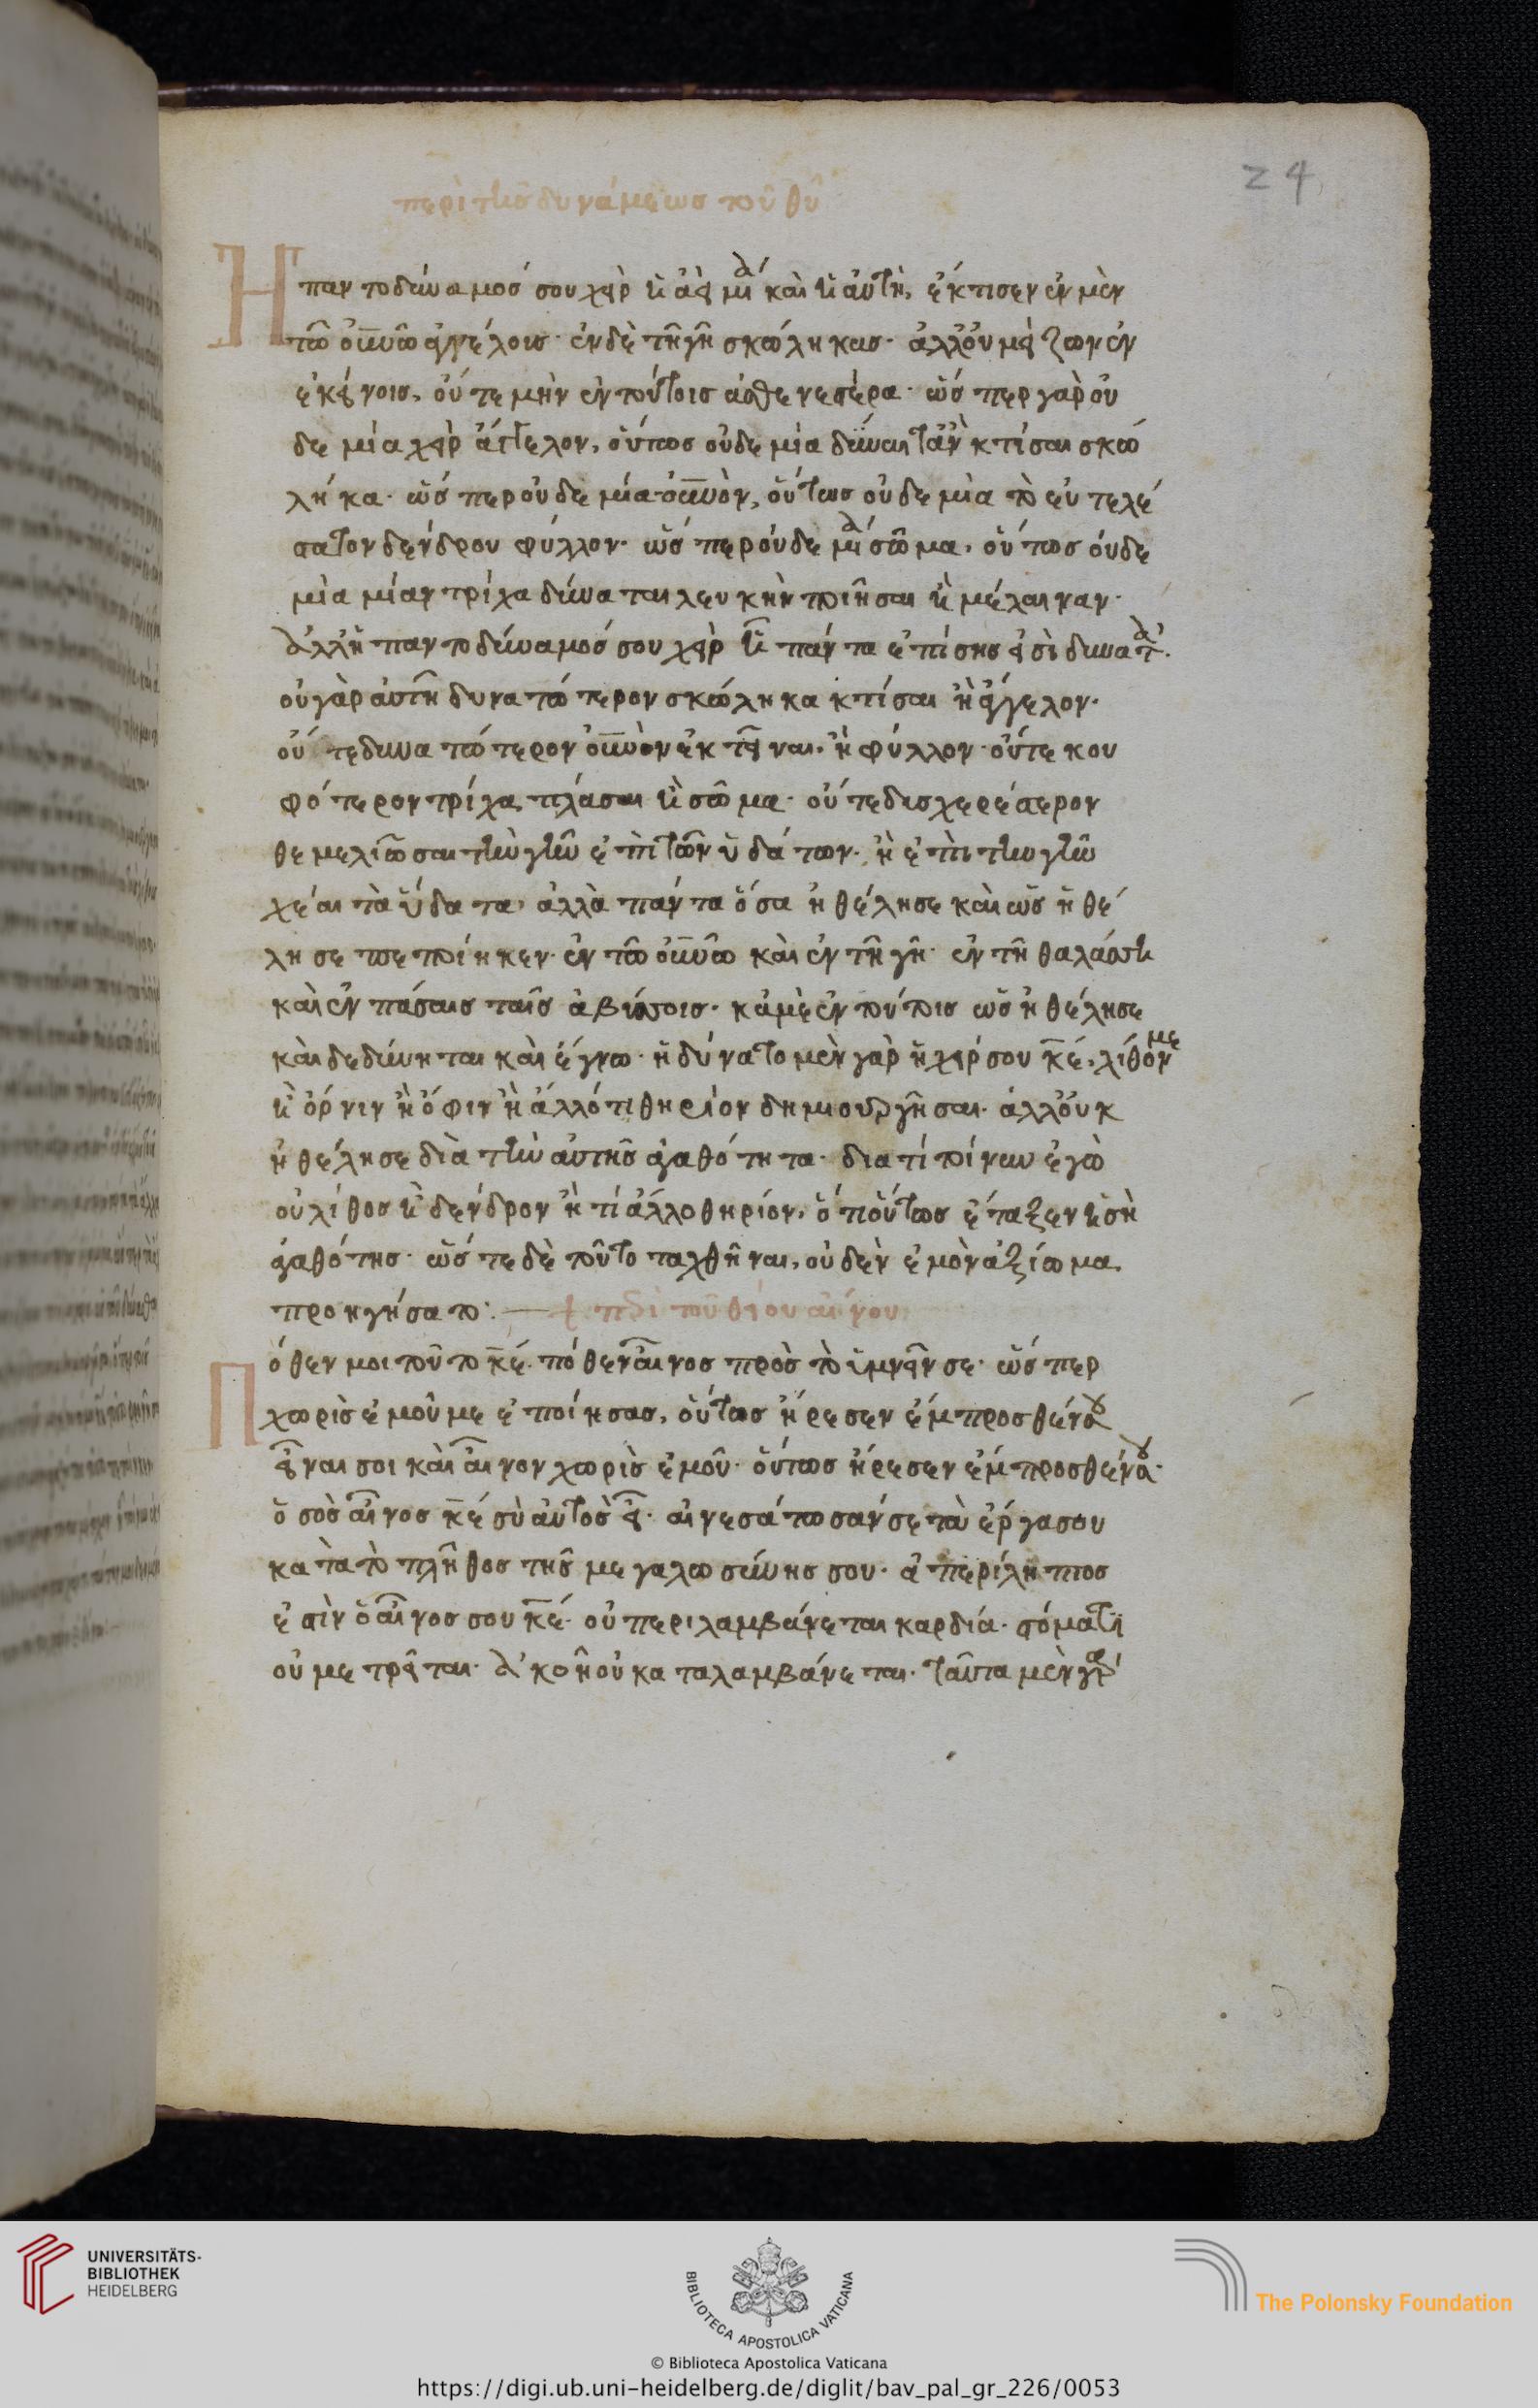 24
περὶ τῆς δυνάμεως τοῦ θῦ
Ἡ παντοδύναμόσ σου χεὶρ ἡ ἀεὶ μία καὶ ἡ αὐτὴ, ἔκτισεν ἐν μὲν
τῶ οὐνῶ ἀγγέλους· ἐν δὲ τῆ γῆ σκώληκας· ἀλλ' οὐ μείζων ἐν
ἐκείνοις, οὔτε μὴν ἐν τούτοις ἀσθενεστέρα· ὥσπερ γὰρ οὐ
δεμία χεὶρ ἄγγελον, οὕτως οὐδεμία δύναιτ' ἂν κτίσαι σκώ
ληκα· ὥσπερ οὐδεμία οὐνὸν, οὕτως οὐδεμία τὸ εὐτελέ
στατον δένδρου φύλλον· ὥσπερ οὐδεμία σῶμα, οὕτως οὐδε
μία μίαν τρίχα δύναται λευκὴν ποιῆσαι ἢ μέλαιναν·
ἀλλ' ἡ παντοδύναμόσ σου χεὶρ ἧ πάντα ἐπίσης εἰσὶ δυνατά.
οὐ γὰρ αὐτῆ δυνατώτερον σκώληκα κτίσαι ἢ ἄγγελον·
οὔτε δυνατώτερον οὐνὸν ἐκτεῖναι, ἢ φύλλον· οὔτε κου
φότερον τρίχα πλάσαι ἢ σῶμα· οὔτε δυσχερέστερον
θεμελιῶσαι τὴν γῆν ἐπὶ τῶν ὑδάτων· ἢ ἐπὶ τὴν γῆν
χέαι τὰ ὕδατα· ἀλλὰ πάντα ὅσα ἠθέλησε καὶ ὡς ἠθέ
λησε πεποίηκεν· ἐν τῶ οὐνῶ καὶ ἐν τῆ γῆ· ἐν τῆ θαλάσση
καὶ ἐν πάσαις ταῖς ἀβύσσοις· κἀμὲ ἐν τούτοις ὡς ἠθέλησε
καὶ δεδύνηται καὶ ἔγνω· ἠδύνατο μὲν γὰρ ἡ χείρ σου κε, λίθον με
ἢ ὄρνιν ἢ ὄφιν ἢ ἄλλό τι θηρίον δημιουργῆσαι· ἀλλ' οὐκ
ἠθέλησε διὰ τὴν αὐτῆς ἀγαθότητα· διατί τοίνυν ἐγὼ
οὐ λίθος ἢ δένδρον ἢ τί ἄλλο θηρίον, ὅτι οὕτως ἔταξεν ἡ σὴ
ἀγαθότης· ὥστε δὲ τοῦτο ταχθῆναι, οὐδὲν ἐμὸν ἀξίωμα
προηγήσατο· περὶ τοῦ θείου αἴνου
Πόθεν μοι τοῦτο κε· πόθεν αἶνος πρὸς τὸ ὑμνεῖν σε· ὥσπερ
χωρὶς ἐμοῦ με ἐποίησας, οὕτως ἤρεσεν ἔμπροσθέν σου
εἶναι σοι καὶ αἶνον χωρὶς ἐμοῦ· οὕτως ἤρεσεν ἔμπροσθέν σου·
ὁ σὸς αἶνος κε σὺ αὐτὸς εἶ· αἰνεσάτωσάν σε τὰ ἔργα σου
κατὰ τὸ πλῆθος τῆς μεγαλωσύνης σου· ἀπερίληπτος
ἐστὶν ὁ αἶνος σου κε· οὐ περιλαμβάνεται καρδία· στόματι
οὐ μετρεῖται· ἀκοῆ οὐ καταλαμβάνεται· ταῦτα μὲν γὰρ
UNIVERSITÄTS-
BIBLIOTHEK
HEIDELBERG
BIBLIOTECA APOSTOLICA VATICANA
The Polonsky Foundation
© Biblioteca Apostolica Vaticana
https://digi.ub.uni-heidelberg.de/diglit/bav_pal_gr_226/0053